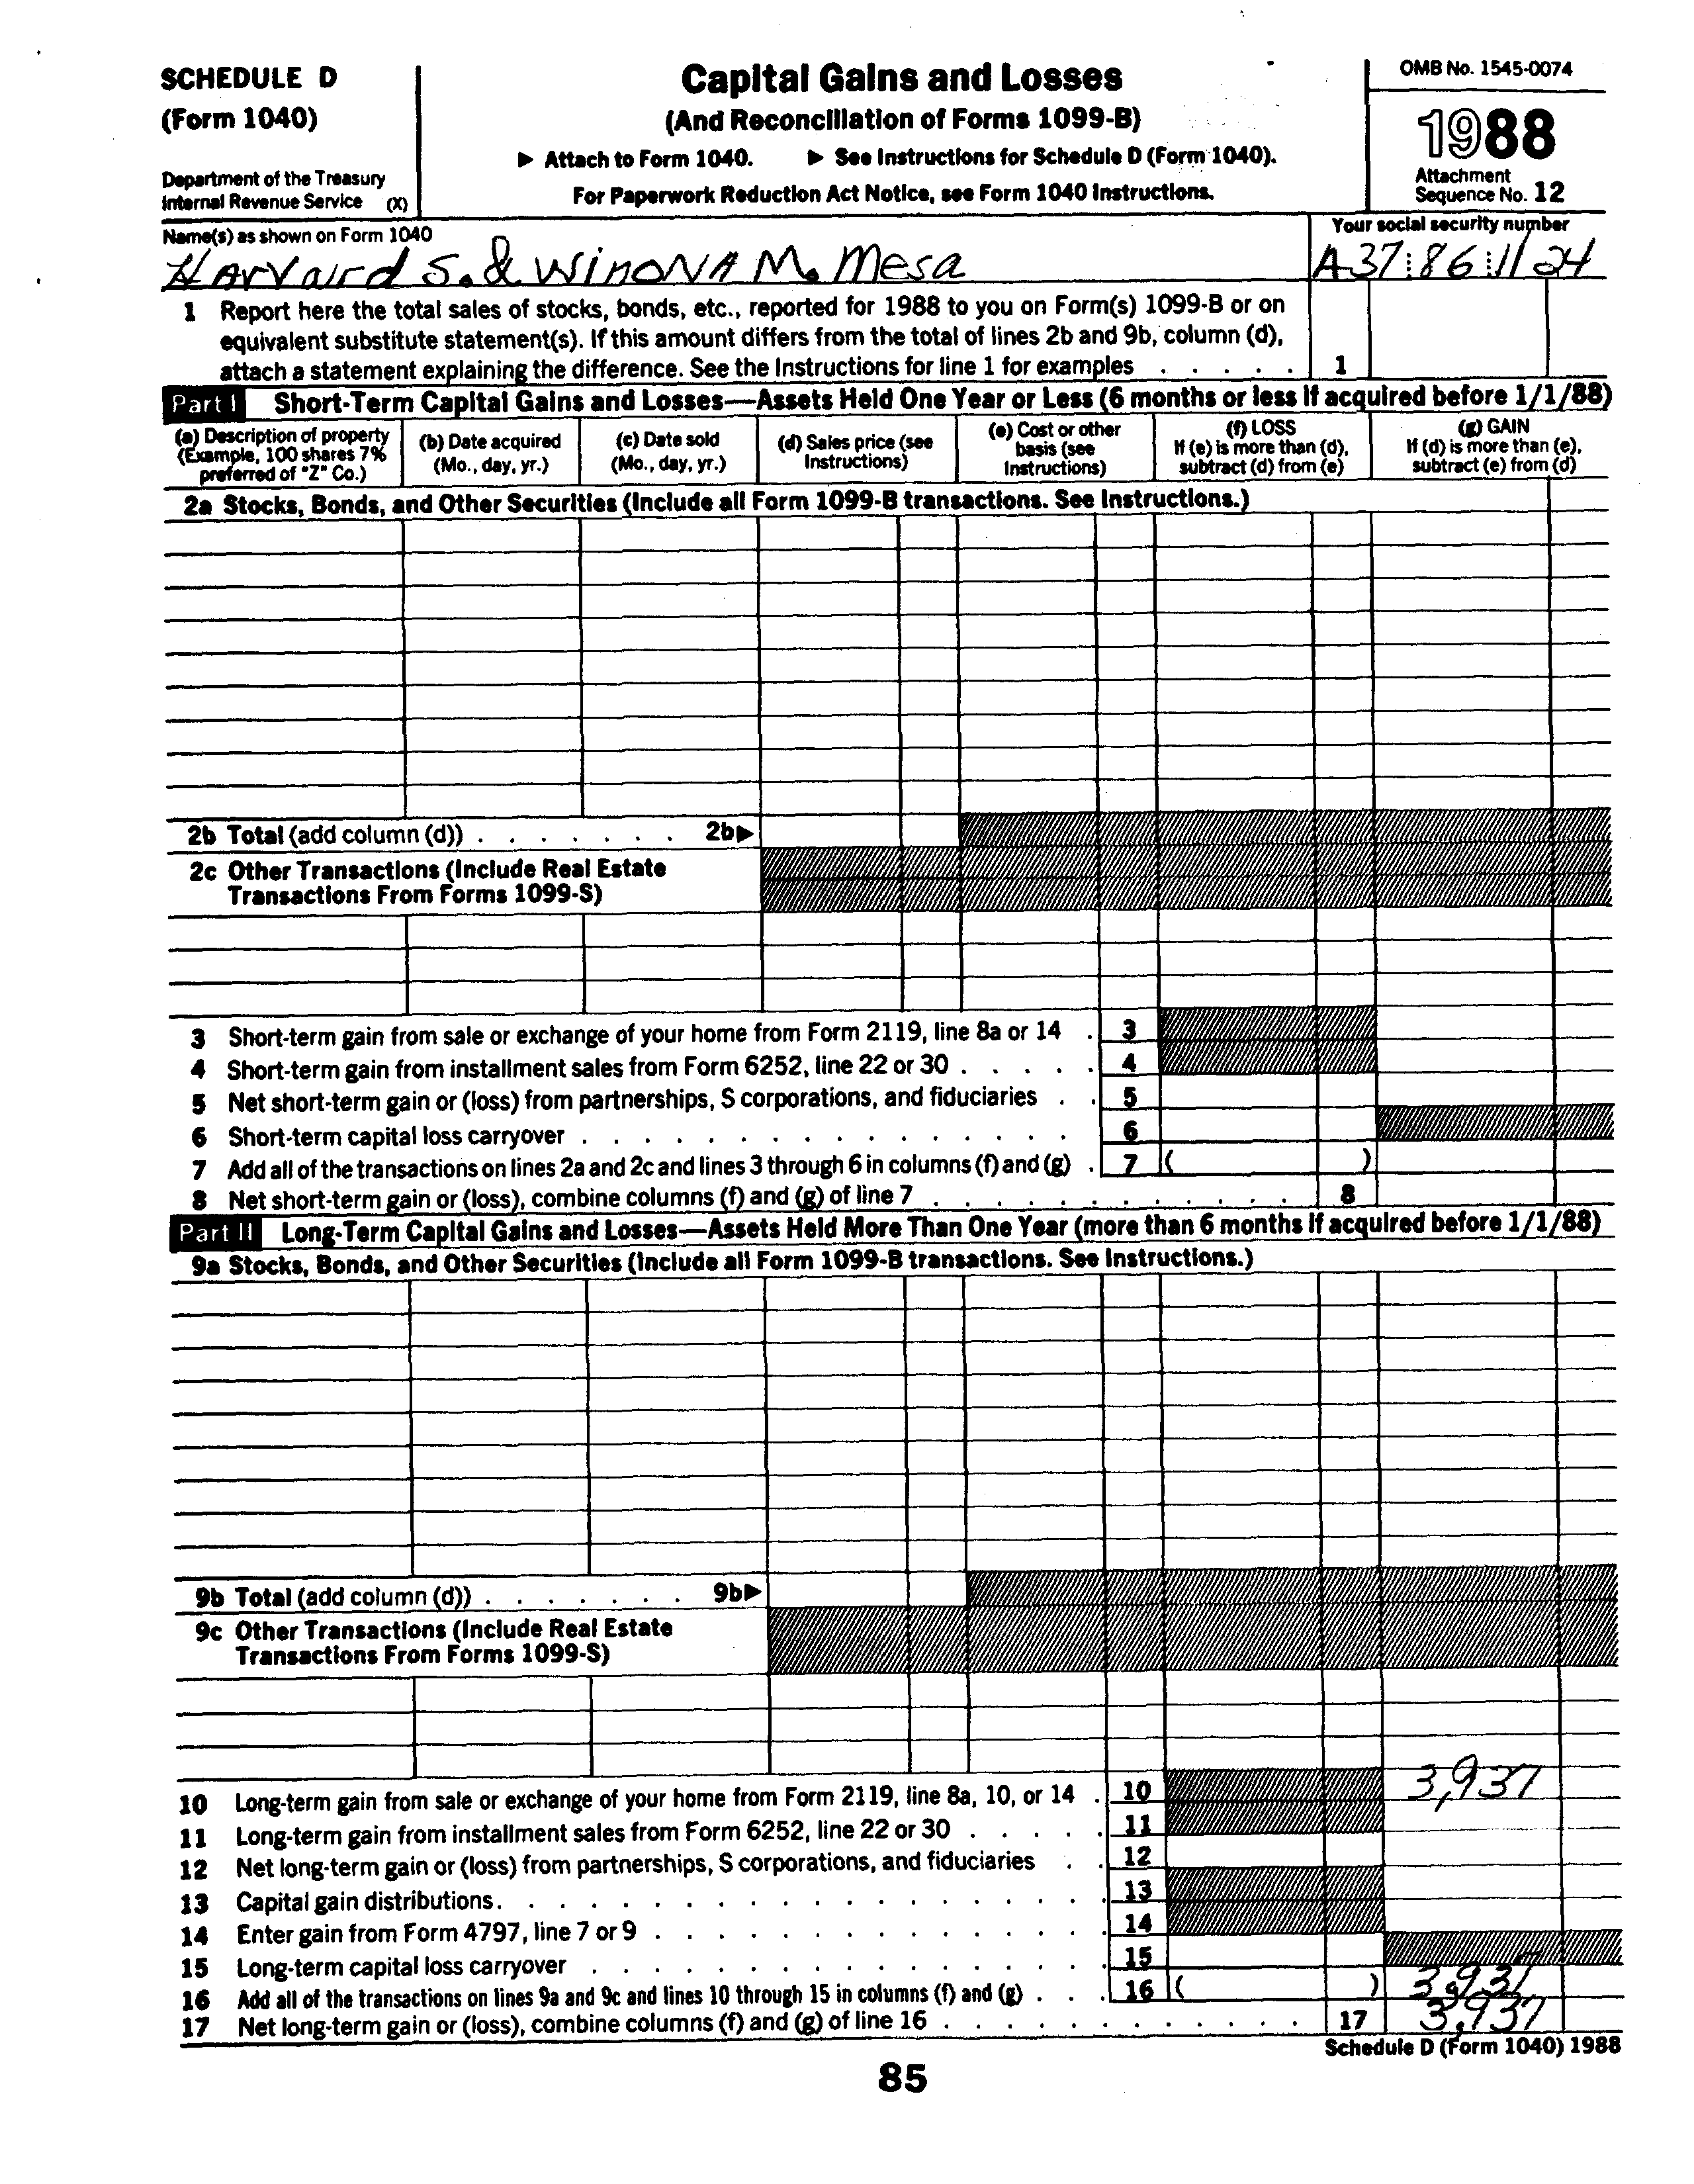 SCHEDULE D
(Form 1040)
Department of the Treasury
Internal Revenue Service (X)
Capital Gains and Losses
(And Reconciliation of Forms 1099-B)
▶ Attach to Form 1040. ▶ See Instructions for Schedule D (Form 1040).
For Paperwork Reduction Act Notice, see Form 1040 Instructions.
OMB No. 1545-0074
1988
Attachment
Sequence No. 12
Name(s) as shown on Form 1040
Harvaird S. & WinonA M. Mesa
Your social security number
A37:86:1124
1 Report here the total sales of stocks, bonds, etc., reported for 1988 to you on Form(s) 1099-B or on
equivalent substitute statement(s). If this amount differs from the total of lines 2b and 9b, column (d),
attach a statement explaining the difference. See the Instructions for line 1 for examples . . . . . 1
Part I Short-Term Capital Gains and Losses—Assets Held One Year or Less (6 months or less if acquired before 1/1/88)
(a) Description of property
(Example, 100 shares 7%
preferred of "Z" Co.)
(b) Date acquired
(Mo., day, yr.)
(c) Date sold
(Mo., day, yr.)
(d) Sales price (see
Instructions)
(e) Cost or other
basis (see
Instructions)
(f) LOSS
If (e) is more than (d),
subtract (d) from (e)
(g) GAIN
If (d) is more than (e),
subtract (e) from (d)
2a Stocks, Bonds, and Other Securities (Include all Form 1099-B transactions. See Instructions.)
2b Total (add column (d)) . . . . . . . 2b▶
2c Other Transactions (Include Real Estate
Transactions From Forms 1099-S)
3 Short-term gain from sale or exchange of your home from Form 2119, line 8a or 14 . 3
4 Short-term gain from installment sales from Form 6252, line 22 or 30 . . . . . 4
5 Net short-term gain or (loss) from partnerships, S corporations, and fiduciaries . . 5
6 Short-term capital loss carryover . . . . . . . . . . . . . . . . 6
7 Add all of the transactions on lines 2a and 2c and lines 3 through 6 in columns (f) and (g) . 7 ( )
8 Net short-term gain or (loss), combine columns (f) and (g) of line 7 . . . . . . . . . . . . 8
Part II Long-Term Capital Gains and Losses—Assets Held More Than One Year (more than 6 months if acquired before 1/1/88)
9a Stocks, Bonds, and Other Securities (Include all Form 1099-B transactions. See Instructions.)
9b Total (add column (d)) . . . . . . . 9b▶
9c Other Transactions (Include Real Estate
Transactions From Forms 1099-S)
10 Long-term gain from sale or exchange of your home from Form 2119, line 8a, 10, or 14 . 10 3,937
11 Long-term gain from installment sales from Form 6252, line 22 or 30 . . . . . 11
12 Net long-term gain or (loss) from partnerships, S corporations, and fiduciaries . . 12
13 Capital gain distributions. . . . . . . . . . . . . . . . . . . . 13
14 Enter gain from Form 4797, line 7 or 9 . . . . . . . . . . . . . . 14
15 Long-term capital loss carryover . . . . . . . . . . . . . . . . 15
16 Add all of the transactions on lines 9a and 9c and lines 10 through 15 in columns (f) and (g) . . . 16 ( ) 3,937
17 Net long-term gain or (loss), combine columns (f) and (g) of line 16 . . . . . . . . . . . . 17 3,937
Schedule D (Form 1040) 1988
85